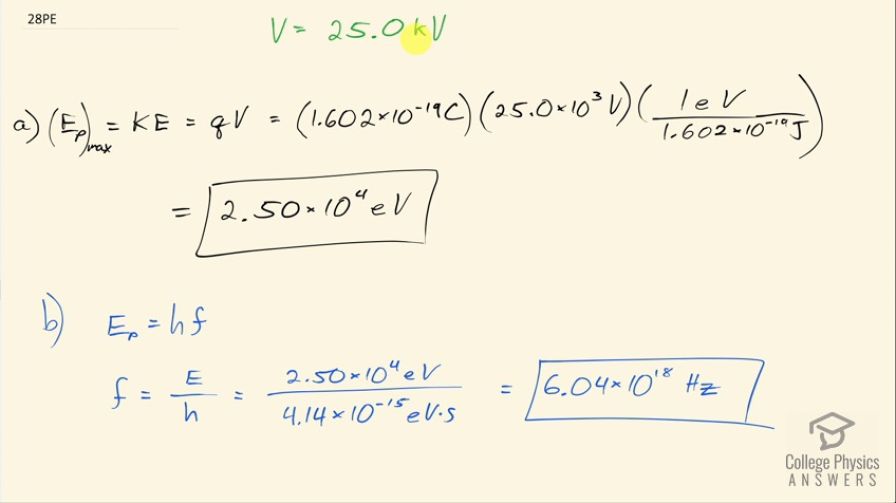 28PE
V = 25.0 kV
a) (E_p)_max = KE = qV = (1.602×10⁻¹⁹C)(25.0×10³V)(1eV / 1.602×10⁻¹⁹J)
= 2.50×10⁴eV
b) E_p = hf
f = E/h = 2.50×10⁴eV / 4.14×10⁻¹⁵eV·s = 6.04×10¹⁸ Hz
College Physics
ANSWERS